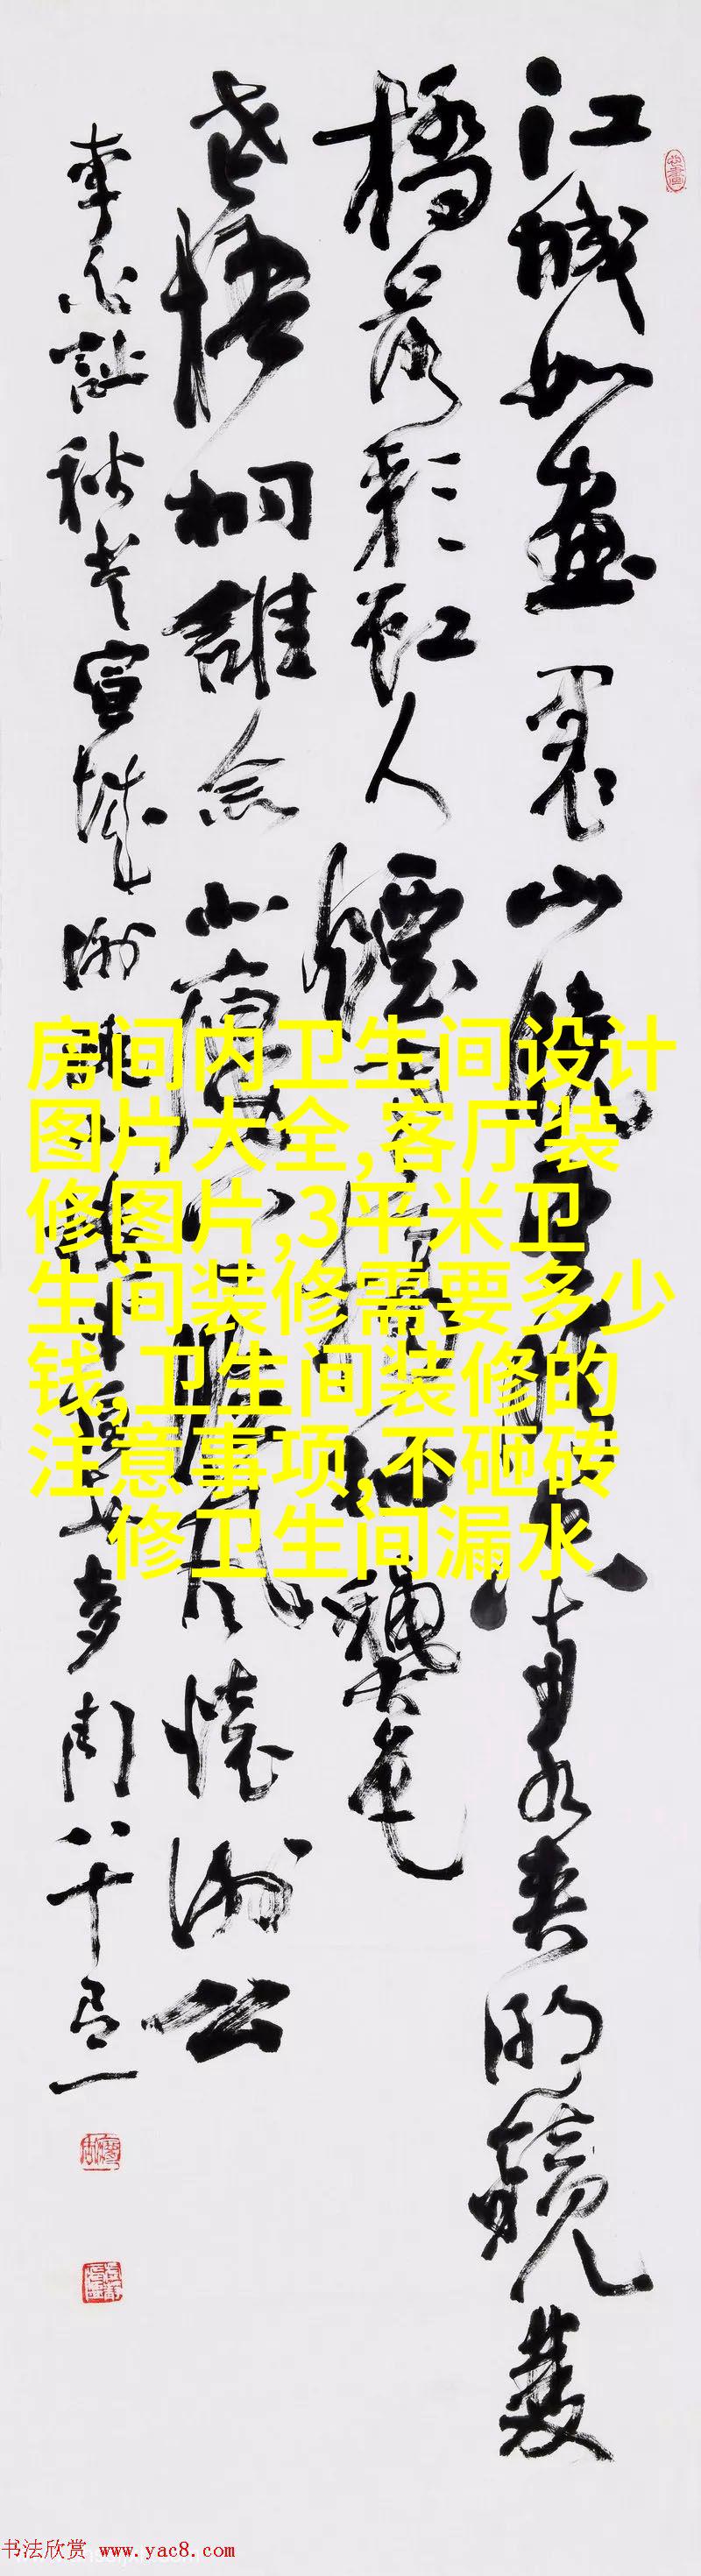 江城如畫裏山曉望晴空兩水夾明鏡雙
橋落彩虹人煙寒橘柚龝色
老梧桐誰念北樓上臨風懷謝公
李白詩秋登宣城謝
八十有一
房间内卫生间设计
图片大全,客厅装
修图片,3平米卫
生间装修需要多少
钱,卫生间装修的
注意事项,不砸砖
修卫生间漏水
书法欣赏 www.yac8.com